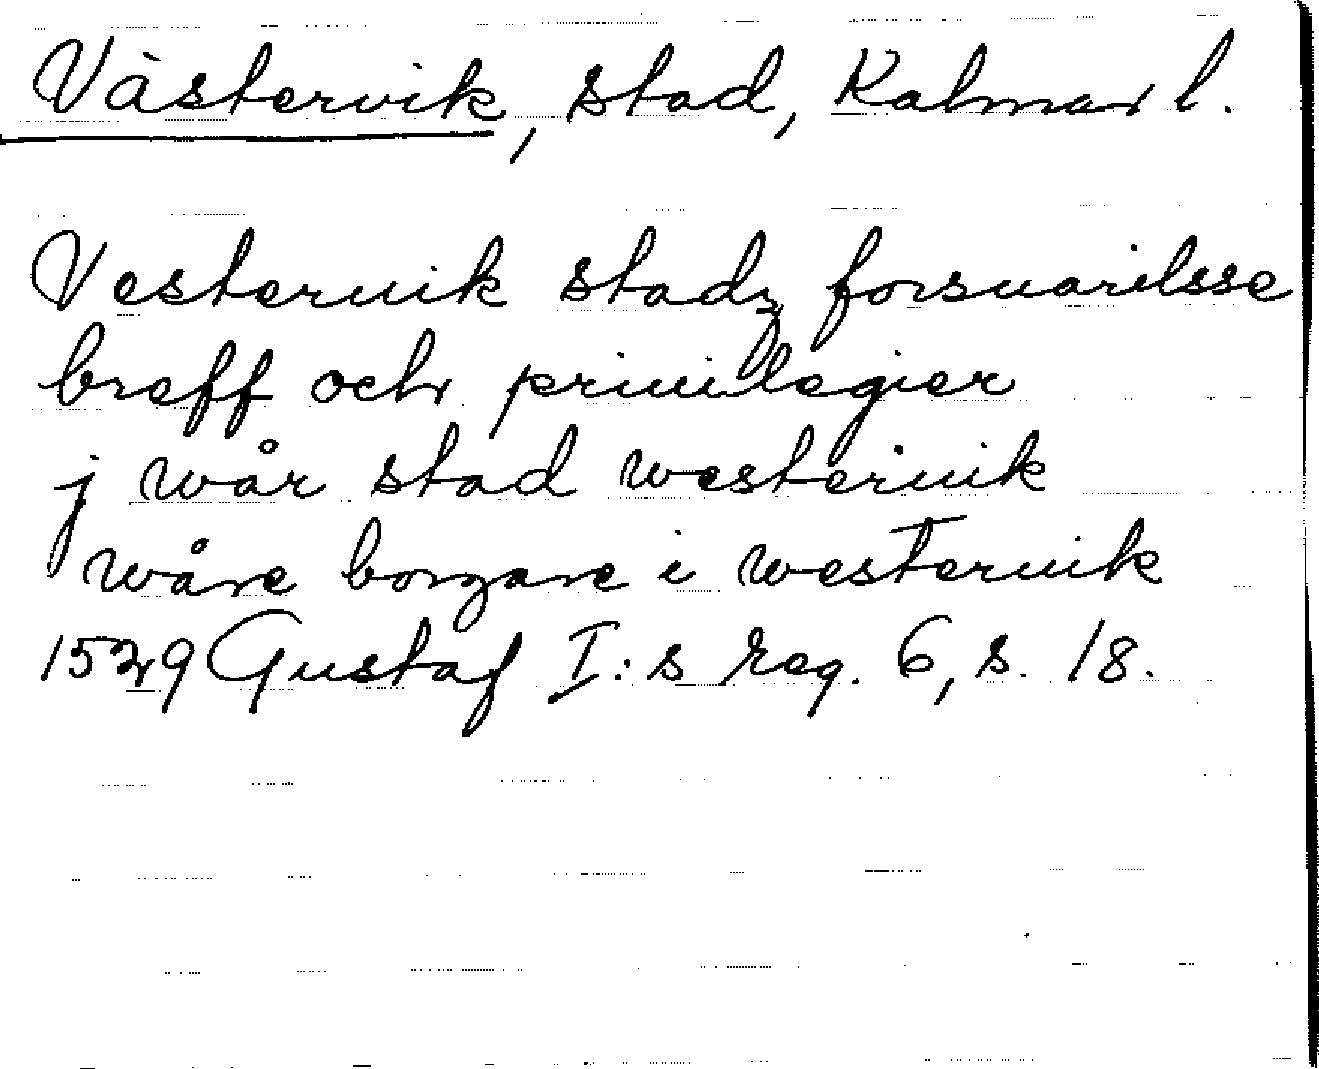 Västervik, stad, Kalmar l.
Vesteruik stadz forsuarilsse
breff och priuilegier
j wår stad westeruik
wåre borgare i westeruik
1529 Gustaf I:s reg. 6, s. 18.